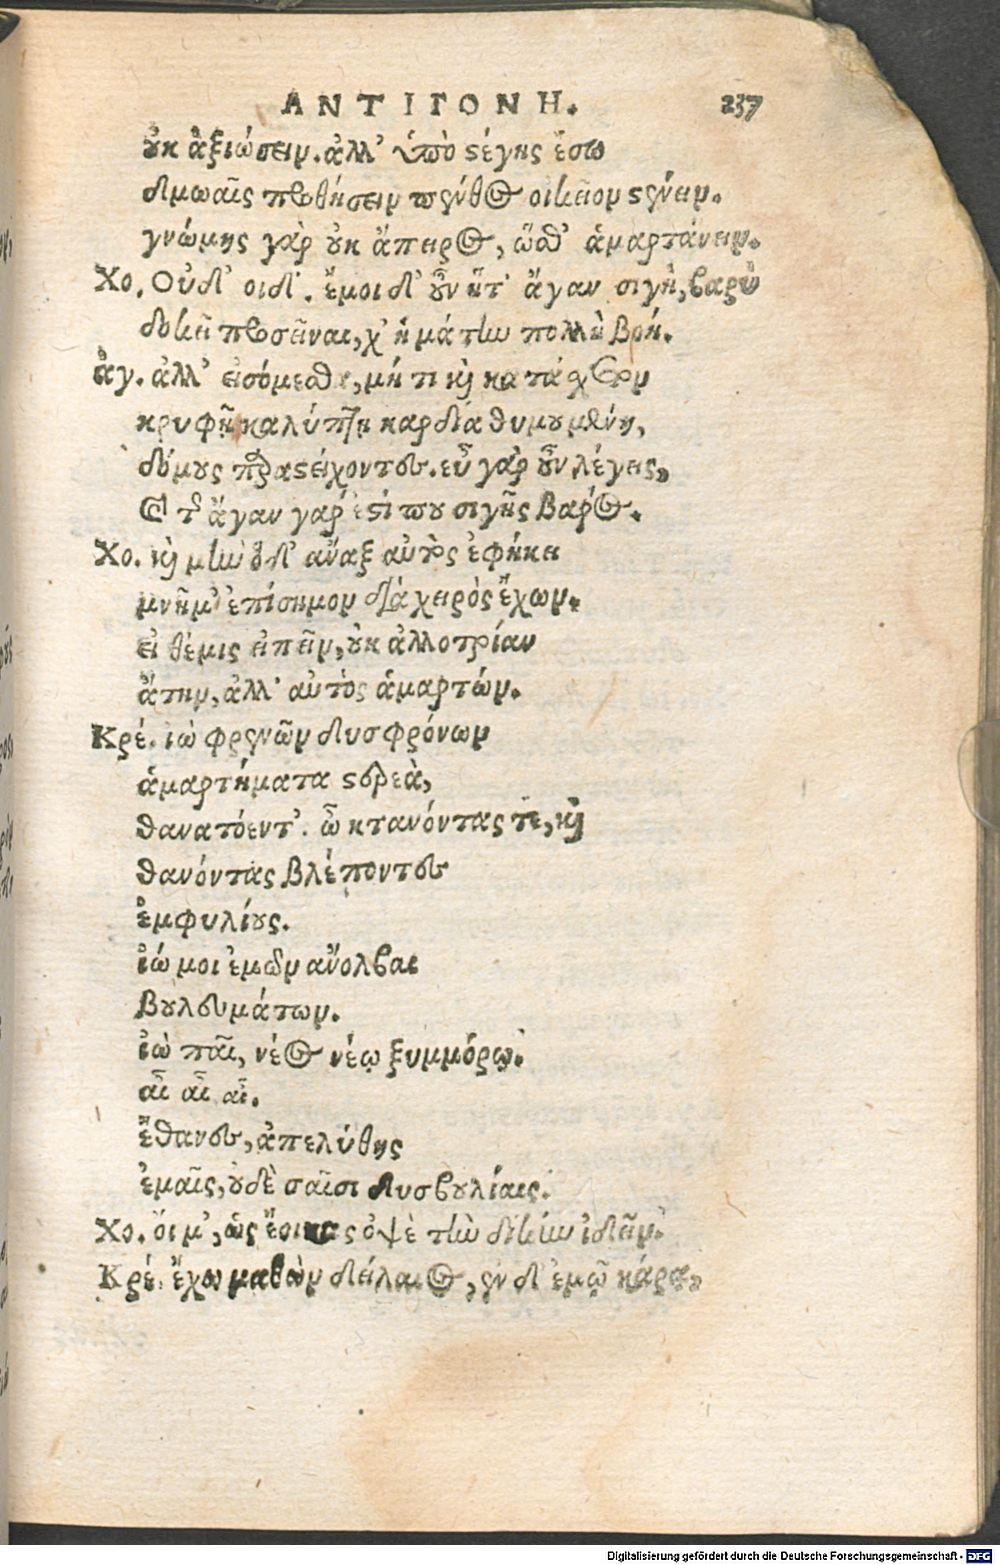 ΑΝΤΙΓΟΝΗ. 237
ȣκ ἀξιώσειν. ἀλλ' ὑπὸ ϛέγης ἔσω
δμωαῖς προθήσειν πένθος οἰκεῖον ϛένειν.
γνώμης γὰρ ȣκ ἄπειρος, ὥσθ' ἁμαρτάνειν.
Χο. Οὐδ' οἶδ'. ἔμοι δ' ȣ̓ν ἥτ' ἄγαν σιγὴ, βαρὺ
δοκεῖ προσεῖναι, χ' ἡ μάτην πολλὴ βοή.
Αγ. ἀλλ' εἰσόμεσθα, μή τι καὶ κατάσχετον
κρυφῇ καλύπτῃ καρδίᾳ θυμȣμένη,
δόμȣς παραϛείχοντες. εὖ γὰρ ȣ̓ν λέγεις,
Καὶ τῆς ἄγαν γάρ ἐϛί πȣ σιγῆς βάρος.
Χο. καὶ μὴν ὅδ' ἄναξ αὐτὸς ἐφήκει
μνῆμ' ἐπίσημον διὰ χειρὸς ἔχων.
εἰ θέμις εἰπεῖν, ȣκ ἀλλοτρίαν
ἄτην, ἀλλ' αὐτὸς ἁμαρτών.
Κρέ. ἰὼ φρενῶν δυσφρόνων
ἁμαρτήματα ϛερεὰ,
θανατόεντ'. ὦ κτανόντας τε, καὶ
θανόντας βλέποντες
ἐμφυλίȣς.
ἰώ μοι ἐμῶν ἄνολβα
βȣλευμάτων.
ἰὼ παῖ, νέος νέῳ ξυμμόρῳ.
αἶ αἶ αἶ.
ἔθανες, ἀπελύθης
ἐμαῖς, ȣδὲ σαῖσι δυσβȣλίαις.
Χο. οἴ μ', ὡς ἔοικας ὀψὲ τὴν δίκην ἰδεῖν.
Κρέ. ἔχω μαθὼν δείλαιος, ἐν δ' ἐμῷ κάρᾳ,
Digitalisierung gefördert durch die Deutsche Forschungsgemeinschaft - DFG